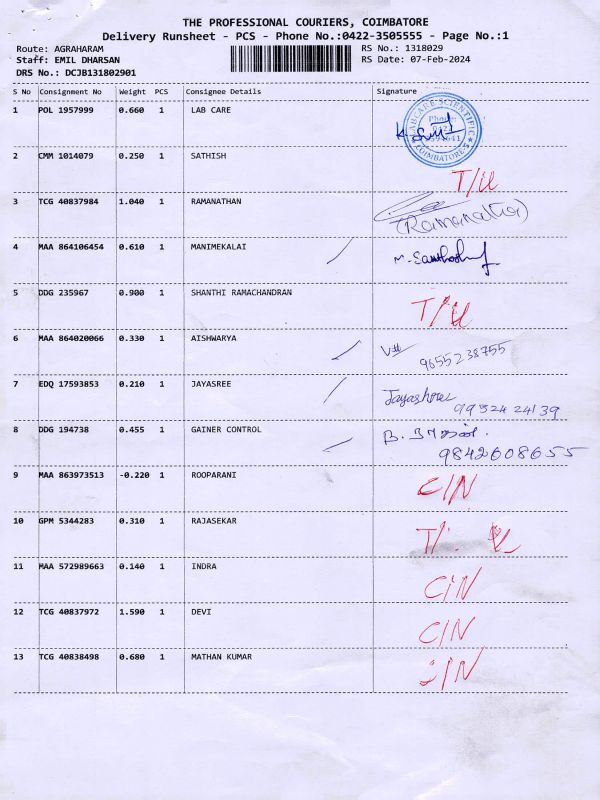 THE PROFESSIONAL COURIERS, COIMBATORE
Delivery Runsheet - PCS - Phone No.:0422-3505555 - Page No.:1
Route: AGRAHARAM RS No.: 1318029
Staff: EMIL DHARSAN RS Date: 07-Feb-2024
DRS No.: DCJB131802901
S No Consignment No Weight PCS Consignee Details Signature
1 POL 1957999 0.660 1 LAB CARE
2 CMM 1014079 0.250 1 SATHISH T/U
3 TCG 40837984 1.040 1 RAMANATHAN (Ramanathan)
4 MAA 864106454 0.610 1 MANIMEKALAI
5 DDG 235967 0.900 1 SHANTHI RAMACHANDRAN T/U
6 MAA 864020066 0.330 1 AISHWARYA 9655238755
7 EDQ 17593853 0.210 1 JAYASREE Jayashree
9952424139
8 DDG 194738 0.455 1 GAINER CONTROL
9842608655
9 MAA 863973513 -0.220 1 ROOPARANI C/N
10 GPM 5344283 0.310 1 RAJASEKAR T/U
11 MAA 572989663 0.140 1 INDRA C/N
12 TCG 40837972 1.590 1 DEVI C/N
13 TCG 40838498 0.680 1 MATHAN KUMAR C/N